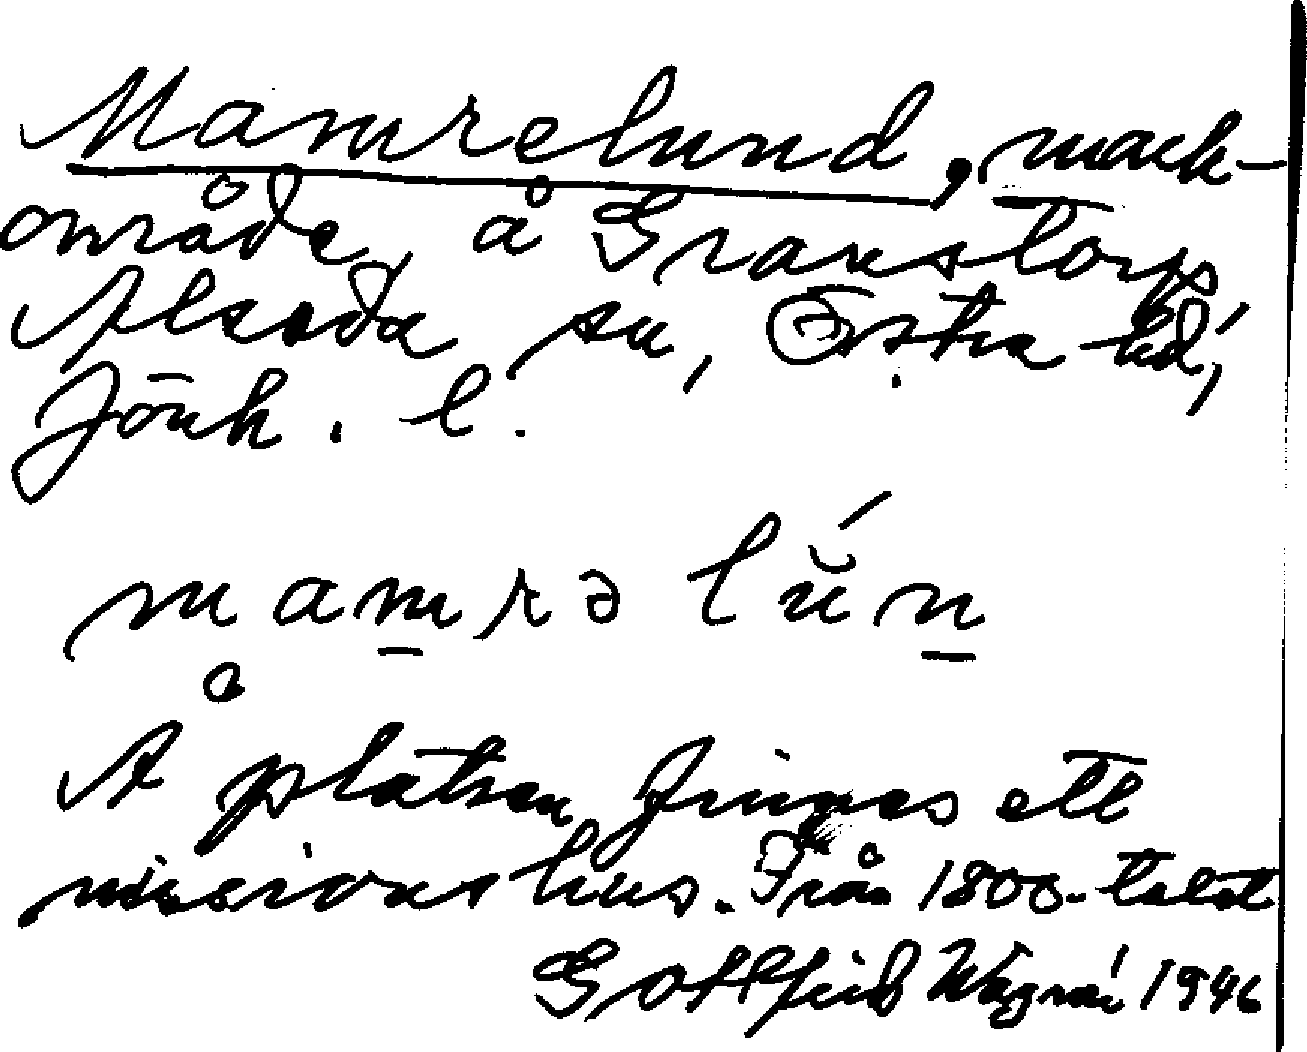 Mamrelund, mark-
område å Granstorp,
Alseda sn, Östra hd,
Jönk. l.
mamrə lŭ́n
Å platsen finnes ett
missionshus. Från 1800-talet
Gottfrid Wägnér 1946